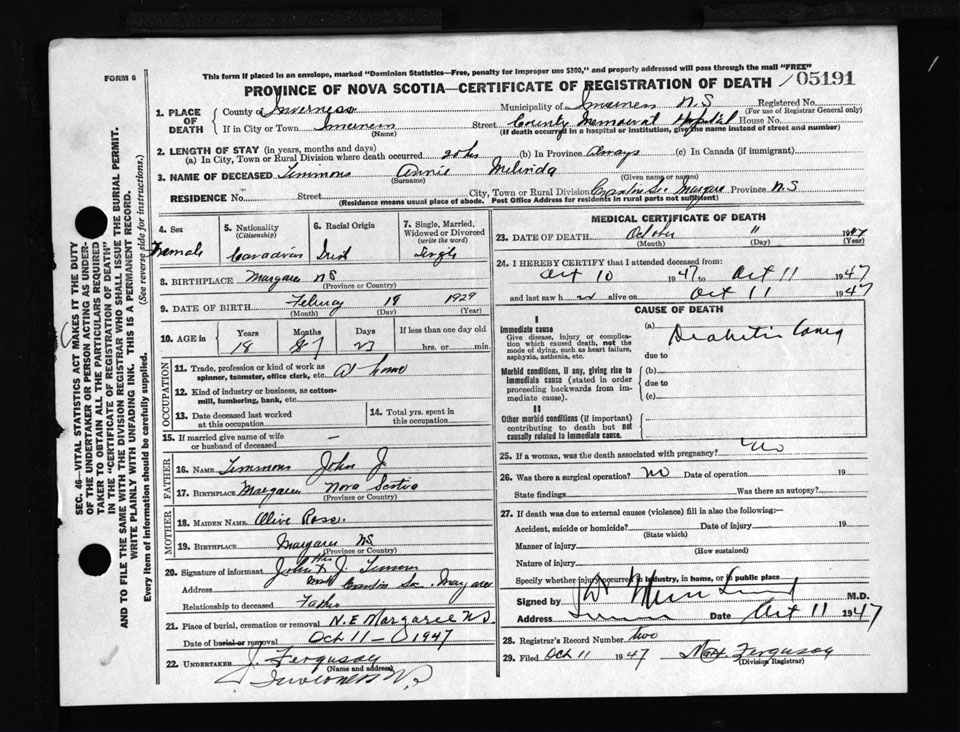 FORM 6
This form if placed in an envelope, marked "Dominion Statistics—Free, penalty for improper use $300," and properly addressed will pass through the mail "FREE"
PROVINCE OF NOVA SCOTIA—CERTIFICATE OF REGISTRATION OF DEATH 05191
1. PLACE OF DEATH
County of Inverness Municipality of Inverness N.S Registered No.
(For use of Registrar General only)
If in City or Town Inverness Street County Memorial Hospital House No.
(Name) (If death occurred in a hospital or institution, give the name instead of street and number)
2. LENGTH OF STAY (in years, months and days)
(a) In City, Town or Rural Division where death occurred 20 hrs (b) In Province Always (c) In Canada (if immigrant)
3. NAME OF DECEASED Timmons Annie Melinda
(Surname) (Given name or names)
RESIDENCE No. Street City, Town or Rural Division Margaree Province N.S
(Residence means usual place of abode. Post Office Address for residents in rural parts not sufficient)
4. Sex Female
5. Nationality (Citizenship) Canadian
6. Racial Origin Irish
7. Single, Married, Widowed or Divorced (write the word) Single
8. BIRTHPLACE Margaree NS
(Province or Country)
9. DATE OF BIRTH 18 1929
(Month) (Day) (Year)
10. AGE in Years Months Days If less than one day old
18 7 23 hrs. or min.
OCCUPATION
11. Trade, profession or kind of work as spinner, teamster, office clerk, etc. At home
12. Kind of industry or business, as cotton-mill, lumbering, bank, etc.
13. Date deceased last worked at this occupation
14. Total yrs. spent in this occupation
15. If married give name of wife or husband of deceased —
FATHER
16. NAME Timmons John J.
17. BIRTHPLACE Margaree Nova Scotia
(Province or Country)
MOTHER
18. MAIDEN NAME Olive Ross.
19. BIRTHPLACE Margaree NS
(Province or Country)
20. Signature of informant John J. Timmons
Address Margaree
Relationship to deceased Father
21. Place of burial, cremation or removal N.E Margaree N.S.
Date of burial or removal Oct 11 - 1947
22. UNDERTAKER J. Ferguson
(Name and address)
Inverness N.S
MEDICAL CERTIFICATE OF DEATH
23. DATE OF DEATH October 11 1947
(Month) (Day) (Year)
24. I HEREBY CERTIFY that I attended deceased from:
Oct 10 1947 to Oct 11 1947
and last saw h er alive on Oct 11 1947
CAUSE OF DEATH
I
Immediate cause
Give disease, injury or complication which caused death, not the mode of dying, such as heart failure, asphyxia, asthenia, etc.
(a) Diabetic Coma
due to
Morbid conditions, if any, giving rise to immediate cause (stated in order proceeding backwards from immediate cause).
(b)
due to
(c)
II
Other morbid conditions (if important) contributing to death but not causally related to immediate cause.
25. If a woman, was the death associated with pregnancy? No
26. Was there a surgical operation? No Date of operation 19
State findings Was there an autopsy?
27. If death was due to external causes (violence) fill in also the following:—
Accident, suicide or homicide? Date of injury 19
(State which)
Manner of injury
(How sustained)
Nature of injury
Specify whether injury occurred in industry, in home, or in public place
Signed by M.D.
Address Date Oct 11 1947
28. Registrar's Record Number two
29. Filed Oct 11 1947 Ferguson
(Division Registrar)
SEC. 46—VITAL STATISTICS ACT MAKES IT THE DUTY
OF THE UNDERTAKER OR PERSON ACTING AS UNDERTAKER TO OBTAIN ALL THE PARTICULARS REQUIRED
IN THE "CERTIFICATE OF REGISTRATION OF DEATH"
AND TO FILE THE SAME WITH THE DIVISION REGISTRAR WHO SHALL ISSUE THE BURIAL PERMIT.
WRITE PLAINLY WITH UNFADING INK. THIS IS A PERMANENT RECORD.
Every item of information should be carefully supplied. (See reverse side for instructions.)